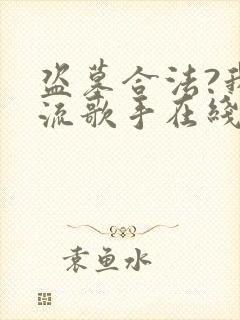 盗墓合法?我
流歌手在线
袁鱼水